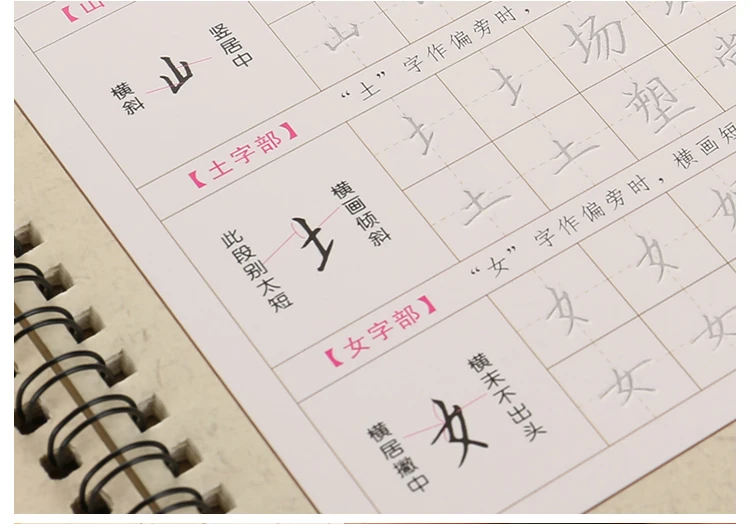 【山
竖居中
山
横斜
山
"土"字作偏旁时，
【土字部】
土 土 场
横画倾斜
土
此段别太短
土 土 塑 尚
"女"字作偏旁时，横画短
【女字部】
女 女
横末不出头
女
横居撇中
女 女